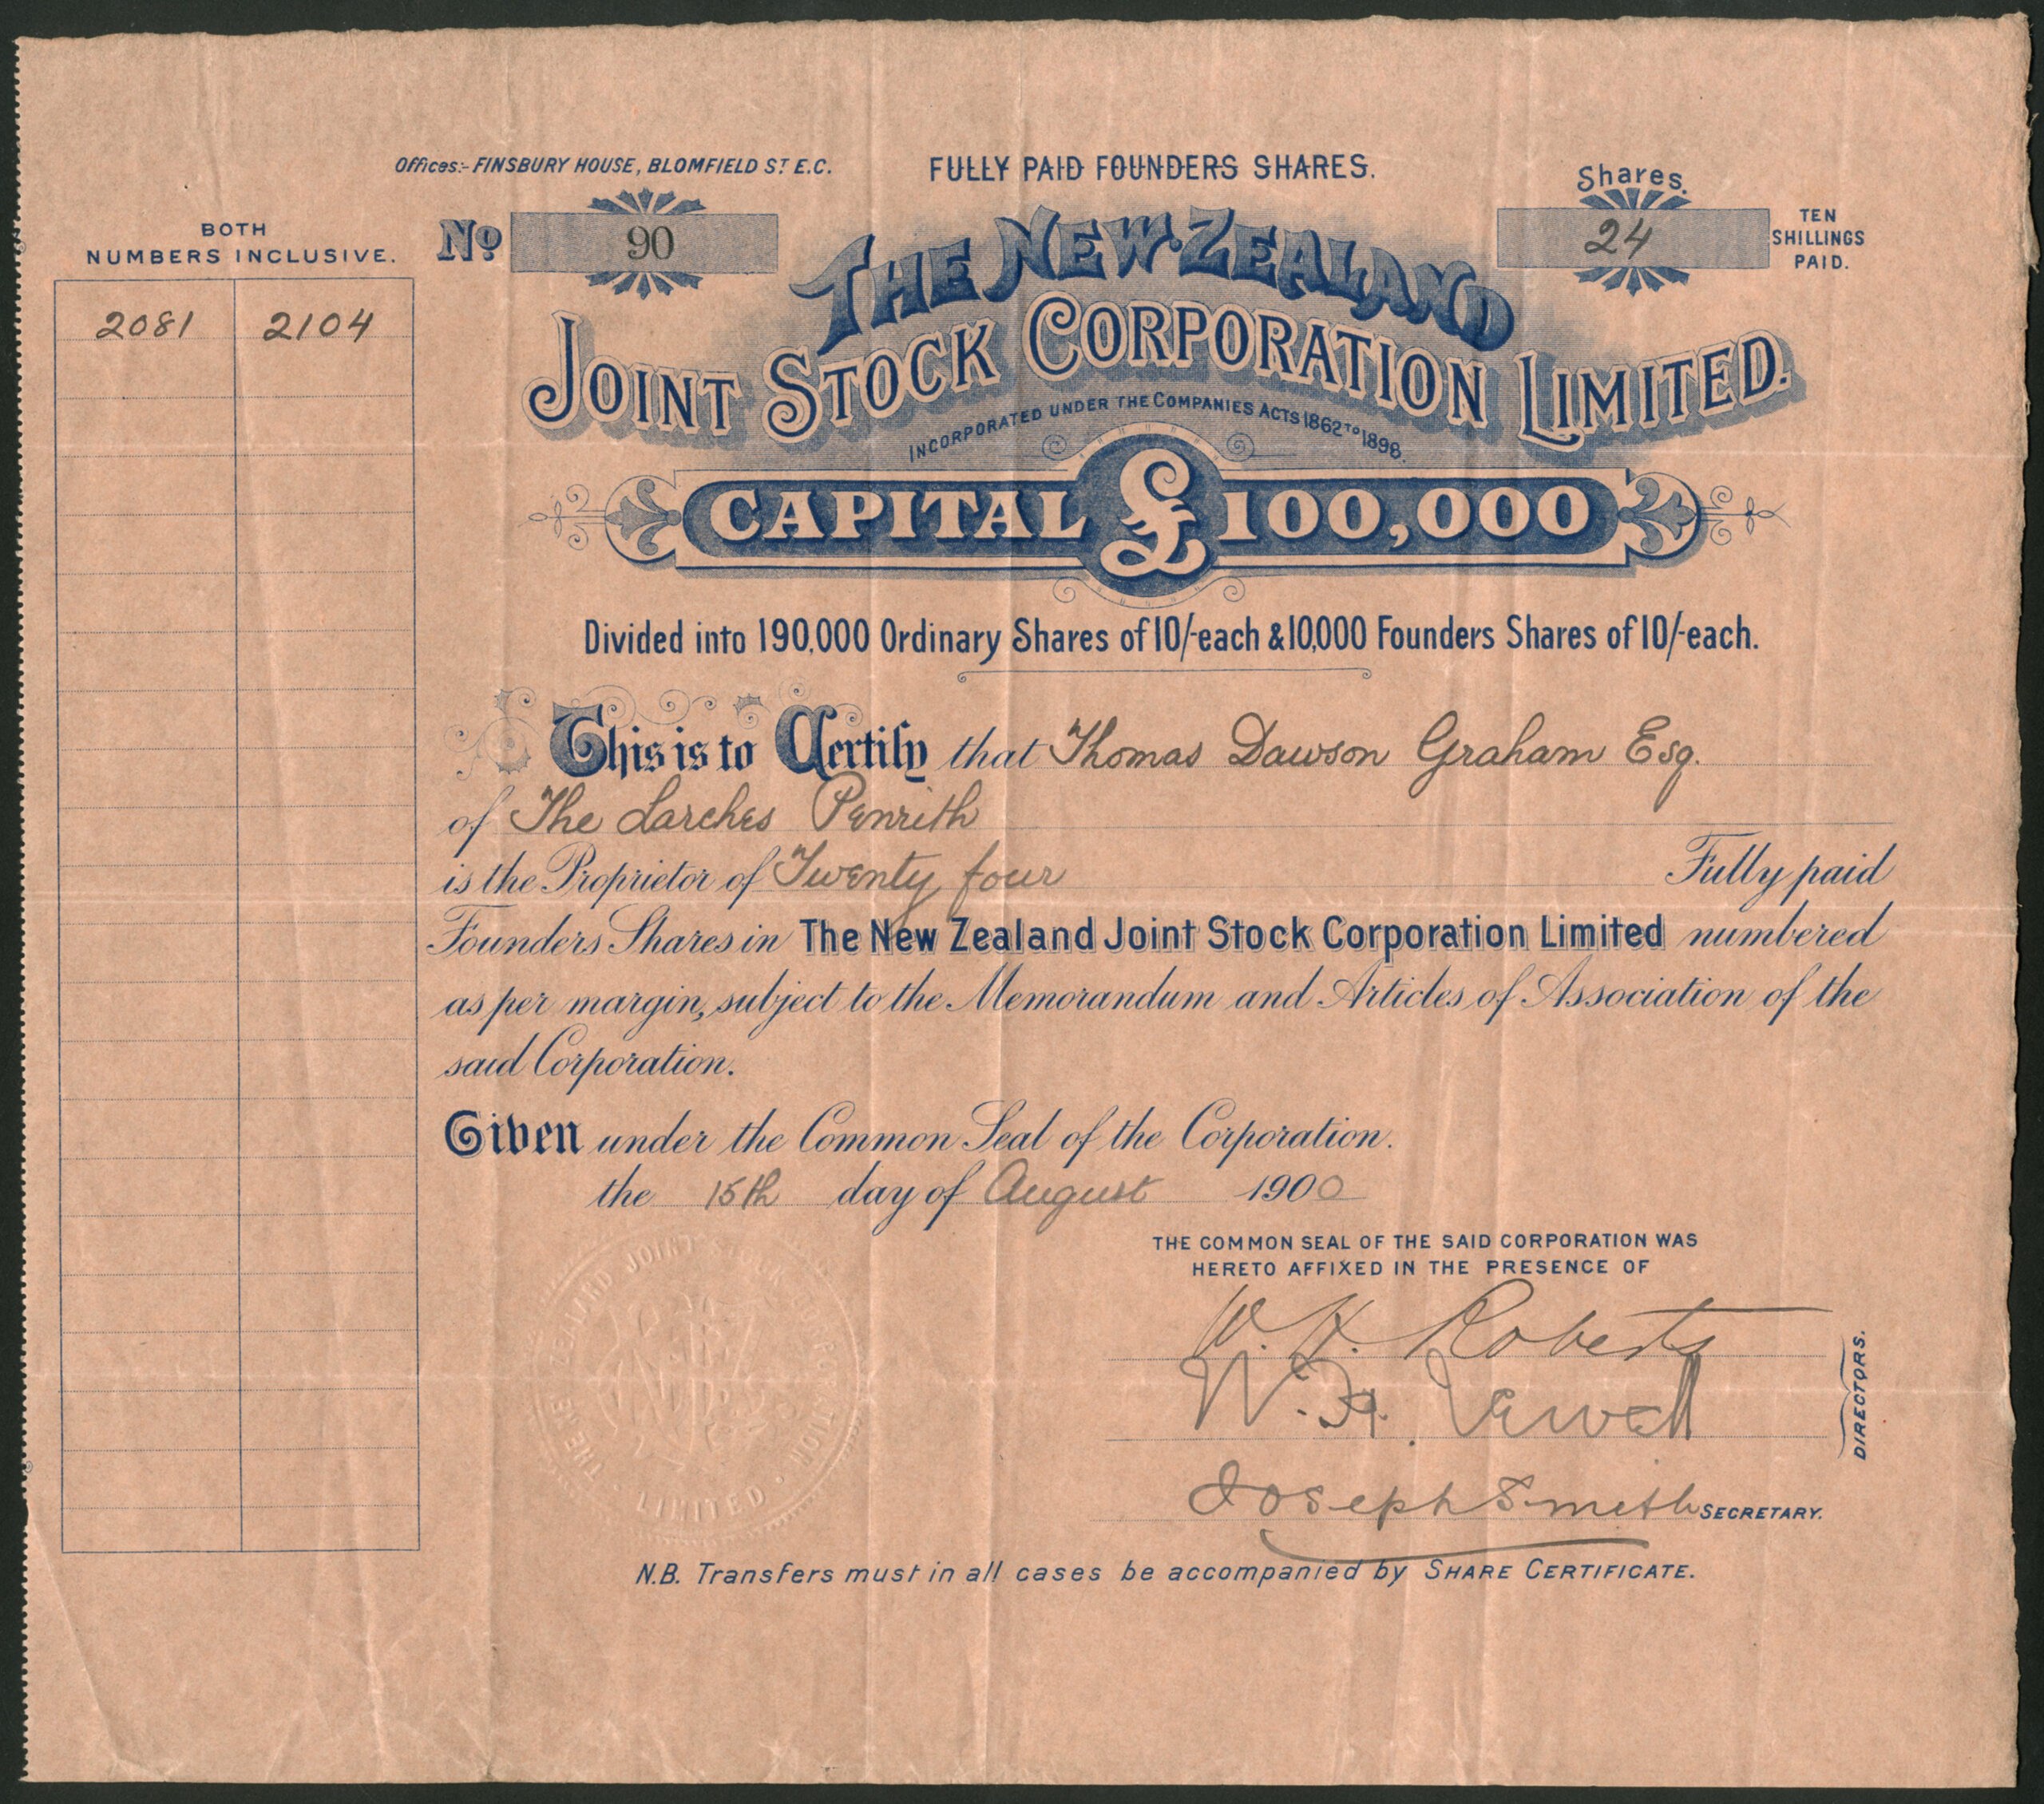 Offices:- FINSBURY HOUSE, BLOMFIELD ST E.C.
FULLY PAID FOUNDERS SHARES.
Shares.
BOTH
NUMBERS INCLUSIVE.
No 90
24
TEN
SHILLINGS
PAID.
2081 2104
THE NEW ZEALAND
JOINT STOCK CORPORATION LIMITED.
INCORPORATED UNDER THE COMPANIES ACTS 1862 TO 1898.
CAPITAL £ 100,000
Divided into 190,000 Ordinary Shares of 10/- each & 10,000 Founders Shares of 10/- each.
This is to Certify that Thomas Dawson Graham Esq.
of The Larches Penrith
is the Proprietor of Twenty four Fully paid
Founders Shares in The New Zealand Joint Stock Corporation Limited numbered
as per margin, subject to the Memorandum and Articles of Association of the
said Corporation.
Given under the Common Seal of the Corporation.
the 15th day of August 1900
THE COMMON SEAL OF THE SAID CORPORATION WAS
HERETO AFFIXED IN THE PRESENCE OF
W. H. Roberts
W. H.
DIRECTORS.
Joseph Smith SECRETARY.
THE NEW ZEALAND JOINT STOCK CORPORATION LIMITED
N.B. Transfers must in all cases be accompanied by SHARE CERTIFICATE.